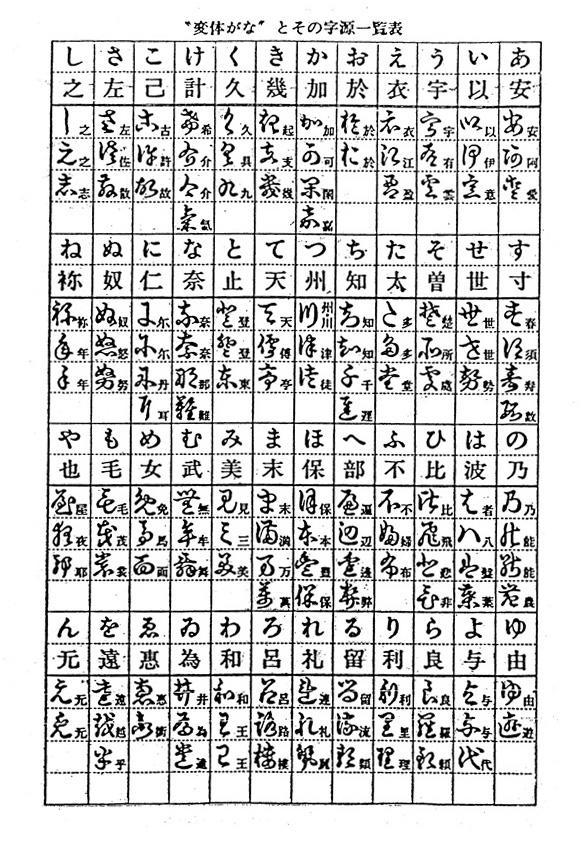 〝変体がな〟とその字源一覧表
あ い う え お か き く け こ さ し
安 以 宇 衣 於 加 幾 久 計 己 左 之
安 以 宇 衣 於 加 起 久 希 古 左 之
阿 伊 有 江 於 可 支 具 介 許 佐 之
愛 意 雲 盈 閑 幾 九 介 故 散 志
氣
す せ そ た ち つ て と な に ぬ ね
寸 世 曽 太 知 州 天 止 奈 仁 奴 祢
春 世 楚 多 知 州川 天 登 奈 尓 奴 祢
須 世 所 多 知 津 傳 登 奈 尓 怒 年
寿 勢 處 堂 千 徒 亭 東 丹 努 年
数 遅 難 耳
の は ひ ふ へ ほ ま み む め も や
乃 波 比 不 部 保 末 美 武 女 毛 也
乃 者 比 不 遍 保 末 見 無 免 毛 屋
能 八 飛 婦 辺 本 満 三 牟 馬 茂 夜
能 盤 悲 布 邊 豊 万 美 舞 面 裳 耶
農 葉 非 弊 保 萬
ゆ よ ら り る れ ろ わ ゐ ゑ を ん
由 与 良 利 留 礼 呂 和 為 惠 遠 无
由 与 良 利 留 連 呂 和 井 惠 遠 无
遊 与 羅 里 流 礼 路 王 為 衛 越 无
代 頼 理 類 麗 楼 王 遺 乎